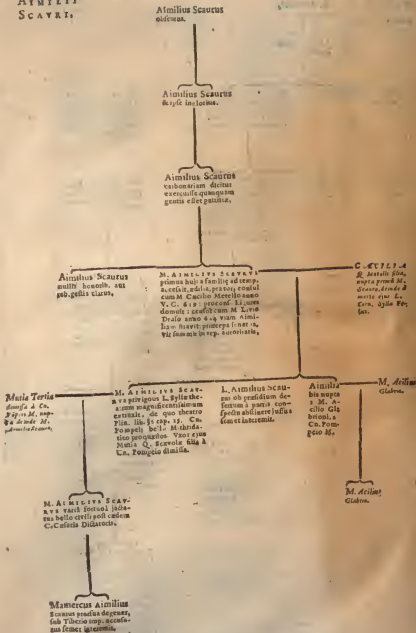 AIMILII
SCAVRI.
Aimilius Scaurus
obscurus.
Aimilius Scaurus
& ipse inglorius.
Aimilius Scaurus
carbonariam dicitur
exercuisse quanquam
gentis esset patritiæ.
Aimilius Scaurus
nullis honorib. aut
reb. gestis clarus.
M. AIMILIVS SCAVRVS
primus huius familiæ ad
cessit, ædilis, prætor, consul
cum M. Cæcilio Metello anno
V. C. procons. Ligures
domuit: censor cum M. Livio
Druso anno viam Aimiliam
stravit: princeps senatus,
Vir summæ in rep. autoritatis,
CÆCILIA
Metelli filia,
nupta primò M.
Scauro, deinde à
morte ejus L.
Corn. Syllæ
Mutia Tertia
dimissa à Cn.
M. nupta
deinde M.
Aimilio Scauro.
M. AIMILIVS SCAVRVS
privignus L. Syllæ theatrum
magnificentissimum
extruxit, de quo theatro
Plin. lib. cap. 15. Cn.
Pompeij bello Mithridatico
proquæstor. Vxor ejus
Mutia Q. Scævolæ filia à
Cn. Pompeio dimissa.
L. Aimilius Scaurus
ob præsidium desertum
à patris conspectu
abstinere jussus
semet interemit.
Aimilia
bis nupta
M. Acilio
Glabrioni,
Cn. Pompeio
M.
M. Acilius
Glabrio.
M. Acilius
Glabrio.
M. AIMILIVS SCAVRVS
varia fortuna jactatus
bello civili post cædem
C. Cæsaris Dictatoris.
Mamercus Aimilius
Scaurus prorsus degener,
sub Tiberio imp. accusatus
semet interemit.